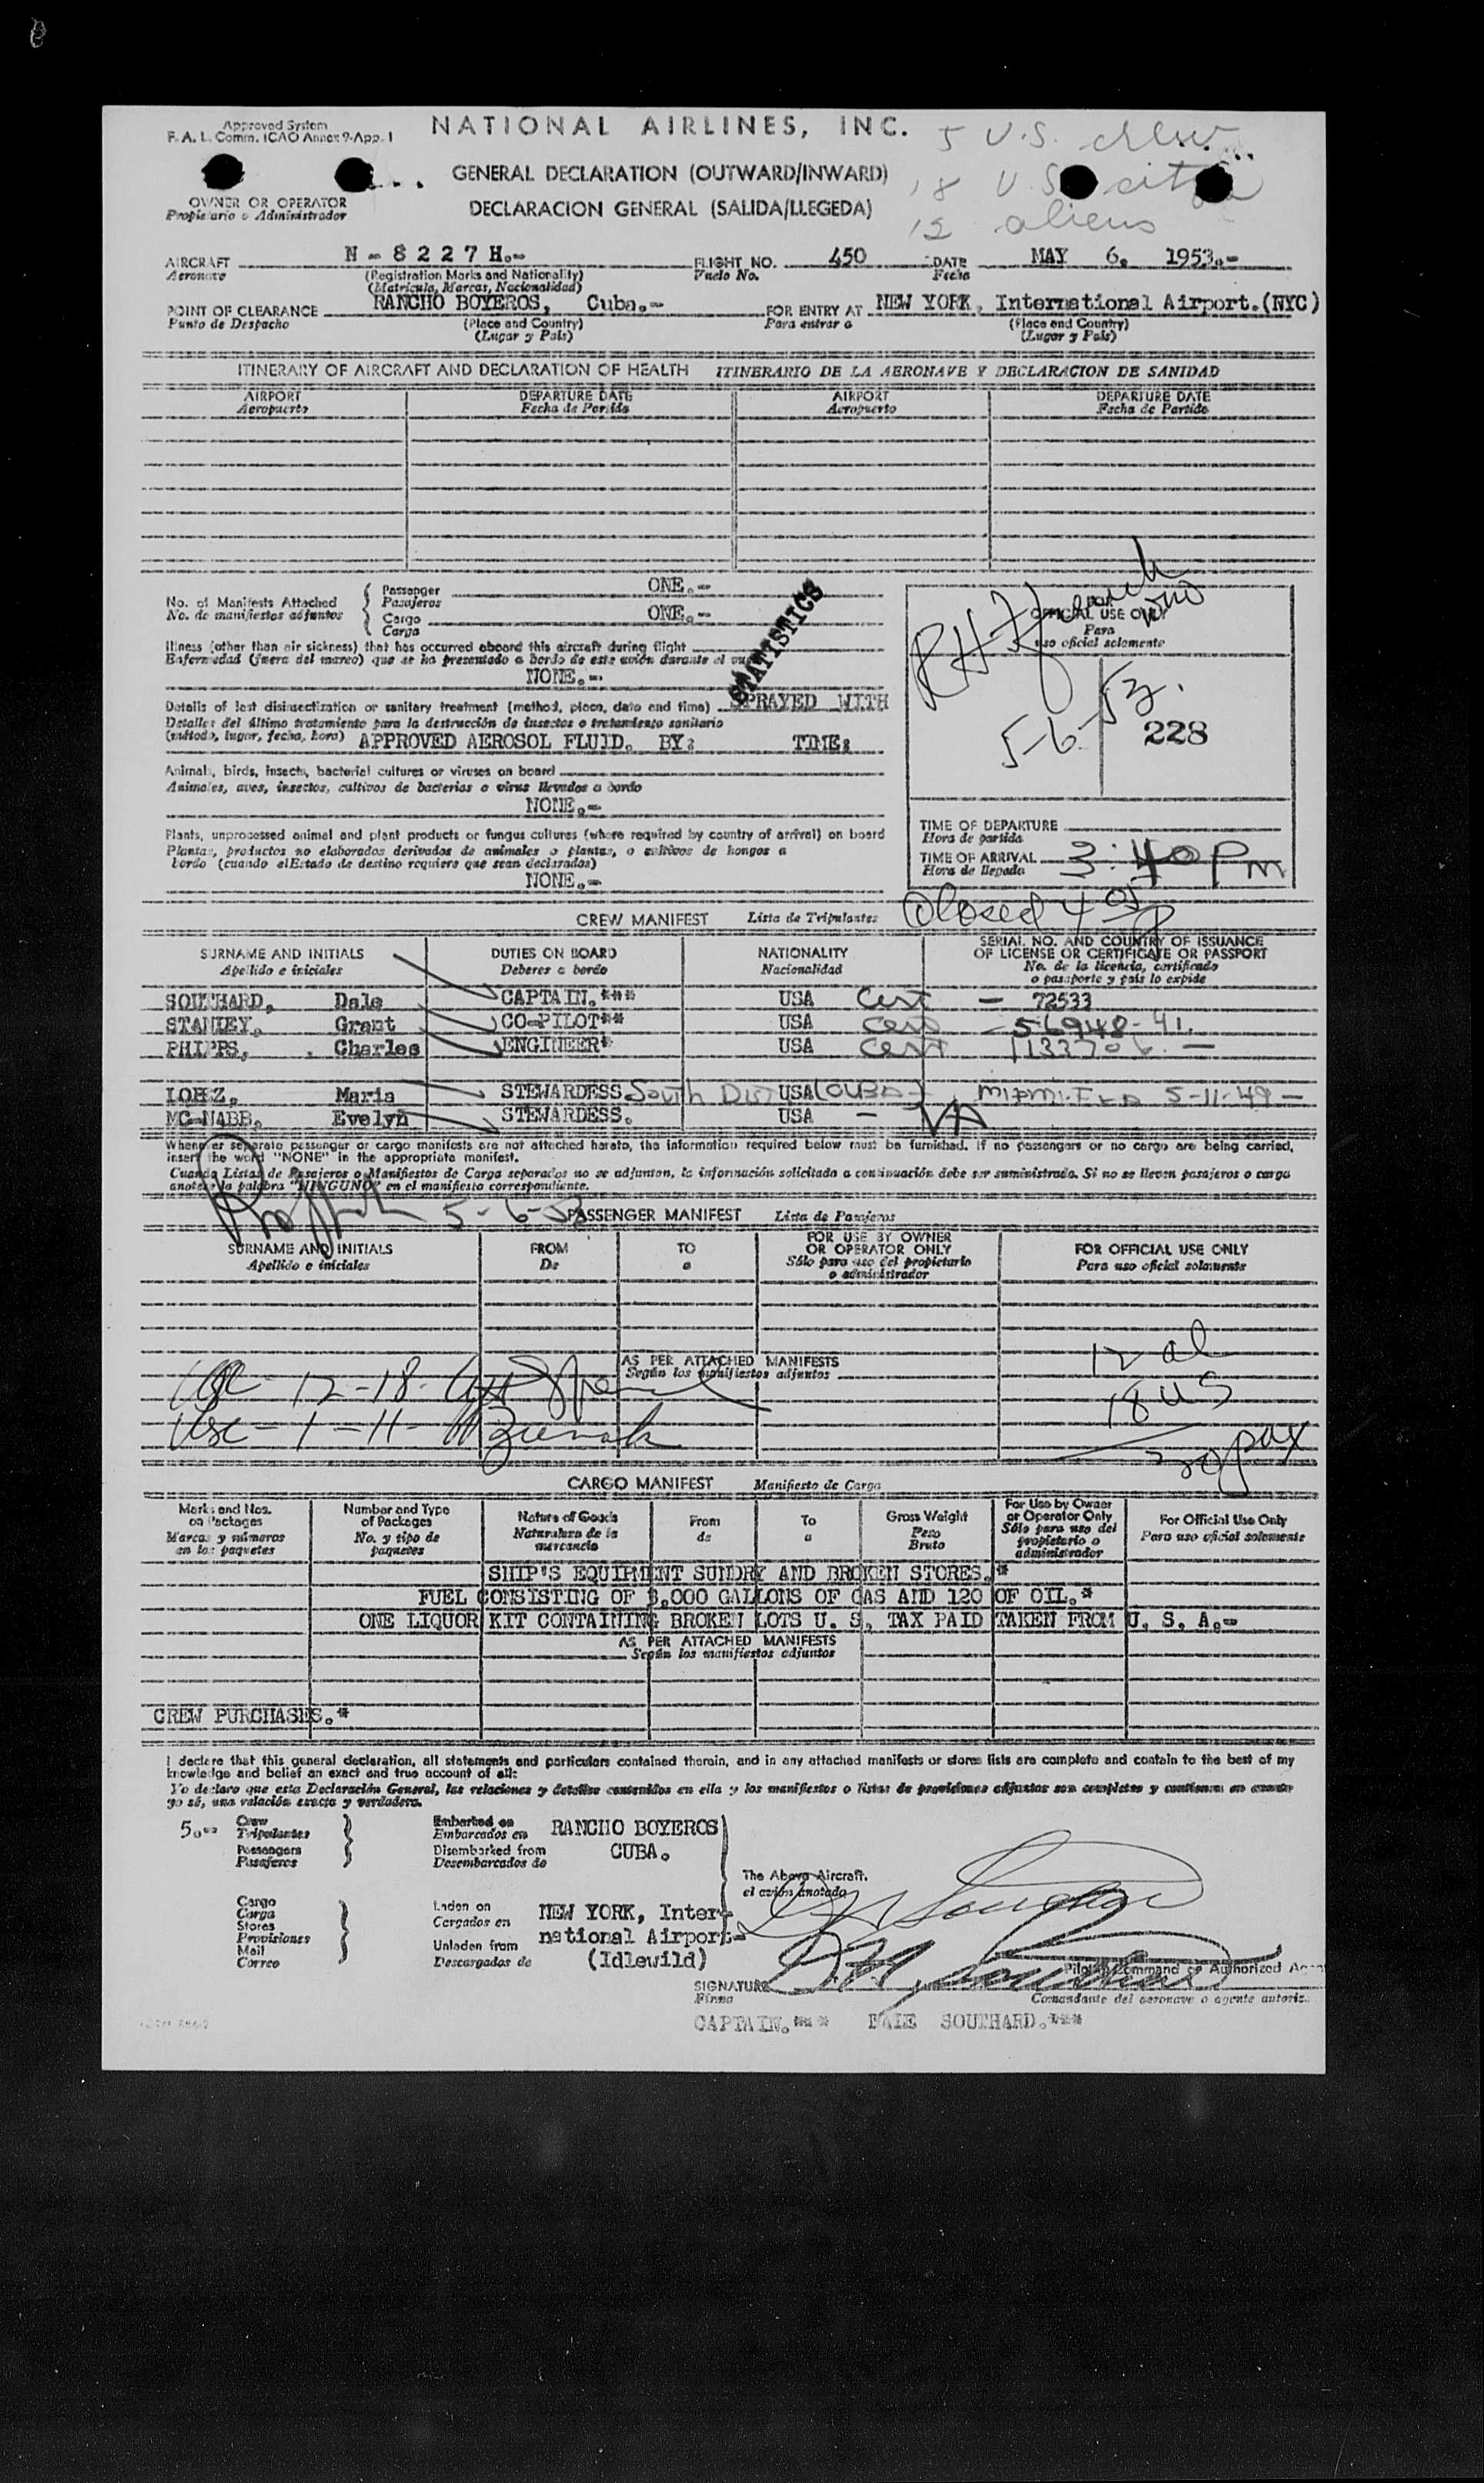 Approved System
F. A. L. Comm. ICAO Annex 9-App. 1
NATIONAL AIRLINES, INC.
5 U.S. crew
GENERAL DECLARATION (OUTWARD/INWARD)
18 U.S. citz
OWNER OR OPERATOR
Propietario o Administrador
DECLARACION GENERAL (SALIDA/LLEGEDA)
12 aliens
AIRCRAFT N - 8 2 2 7 H.- FLIGHT NO. 450 DATE MAY 6, 1953.-
Aeronave (Registration Marks and Nationality) Vuelo No. Fecha
(Matricula, Marcas, Nacionalidad)
POINT OF CLEARANCE RANCHO BOYEROS, Cuba.- FOR ENTRY AT NEW YORK, International Airport.(NYC)
Punto de Despacho (Place and Country) Para entrar a (Place and Country)
(Lugar y País) (Lugar y País)
ITINERARY OF AIRCRAFT AND DECLARATION OF HEALTH ITINERARIO DE LA AERONAVE Y DECLARACION DE SANIDAD
AIRPORT DEPARTURE DATE AIRPORT DEPARTURE DATE
Aeropuerto Fecha de Partida Aeropuerto Fecha de Partida
No. of Manifests Attached
No. de manifiestos adjuntos
Passenger ONE.-
Pasajeros
Cargo ONE.-
Carga
STATISTICS
OFFICIAL USE ONLY
Para
uso oficial solamente
Illness (other than air sickness) that has occurred aboard this aircraft during flight
Enfermedad (fuera del mareo) que se ha presentado a bordo de este avión durante el vuelo
NONE.-
Details of last disinsectization or sanitary treatment (method, place, date and time) SPRAYED WITH
Detalles del último tratamiento para la destrucción de insectos o tratamiento sanitario
(método, lugar, fecha, hora) APPROVED AEROSOL FLUID. BY: TIME:
5-6-53.
228
Animals, birds, insects, bacterial cultures or viruses on board
Animales, aves, insectos, cultivos de bacterias o virus llevados a bordo
NONE.-
Plants, unprocessed animal and plant products or fungus cultures (where required by country of arrival) on board
Plantas, productos no elaborados derivados de animales o plantas, o cultivos de hongos a
bordo (cuando elEstado de destino requiere que sean declarados)
NONE.-
TIME OF DEPARTURE
Hora de partida
TIME OF ARRIVAL 3:40 PM
Hora de llegada
Closed
CREW MANIFEST Lista de Tripulantes
SURNAME AND INITIALS DUTIES ON BOARD NATIONALITY SERIAL NO. AND COUNTRY OF ISSUANCE
OF LICENSE OR CERTIFICATE OR PASSPORT
Apellido e iniciales Deberes a bordo Nacionalidad No. de la licencia, certificado
o pasaporte y país lo expide
SOUTHARD, Dale CAPTAIN.*** USA Cert - 72533
STANLEY, Grant CO-PILOT** USA Cert - 56948-41.
PHIPPS, Charles ENGINEER* USA Cert
LOPEZ, Maria STEWARDESS South Dist USA (CUBA) MIAMI-FLA 5-11-49 -
MC NABB, Evelyn STEWARDESS. USA - VA
Whenever separate passenger or cargo manifests are not attached hereto, the information required below must be furnished. If no passengers or no cargo are being carried,
insert the word "NONE" in the appropriate manifest.
Cuando Listas de Pasajeros o Manifiestos de Carga separados no se adjunten, la información solicitada a continuación debe ser suministrada. Si no se lleven pasajeros o carga
anotese la palabra "NINGUNO" en el manifiesto correspondiente.
5-6-53
PASSENGER MANIFEST Lista de Pasajeros
SURNAME AND INITIALS FROM TO FOR USE BY OWNER
OR OPERATOR ONLY FOR OFFICIAL USE ONLY
Apellido e iniciales De a Sólo para uso del propietario
o administrador Para uso oficial solamente
AS PER ATTACHED MANIFESTS
Según los manifiestos adjuntos
12 al
18 US
30 pax
CARGO MANIFEST Manifiesto de Carga
Marks and Nos.
on Packages
Marcas y números
en los paquetes
Number and Type
of Packages
No. y tipo de
paquetes
Nature of Goods
Naturaleza de la
mercancia
From
de
To
a
Gross Weight
Peso
Bruto
For Use by Owner
or Operator Only
Sólo para uso del
propietario o
administrador
For Official Use Only
Para uso oficial solamente
SHIP'S EQUIPMENT SUNDRY AND BROKEN STORES.*
FUEL CONSISTING OF 3,000 GALLONS OF GAS AND 120 OF OIL.*
ONE LIQUOR KIT CONTAINING BROKEN LOTS U. S. TAX PAID TAKEN FROM U. S. A.-
AS PER ATTACHED MANIFESTS
Según los manifiestos adjuntos
CREW PURCHASES.*
I declare that this general declaration, all statements and particulars contained therein, and in any attached manifests or stores lists are complete and contain to the best of my
knowledge and belief an exact and true account of all:
Yo declaro que esta Declaración General, las relaciones y detalles contenidos en ella y los manifiestos o listas de provisiones adjuntos son completos y contienen en cuanto
yo sé, una relación exacta y verdadera.
5.-- Crew
Tripulantes
Passengers
Pasajeros
Embarked on
Embarcados en
Disembarked from
Desembarcados de
RANCHO BOYEROS
CUBA.
The Above Aircraft.
el avión anotado
Cargo
Carga
Stores
Provisiones
Mail
Correo
Laden on
Cargados en
Unladen from
Descargados de
NEW YORK, Inter-
national Airport-
(Idlewild)
SIGNATURE
Firma
Pilot in Command or Authorized Agent
Comandante del aeronave o agente autoriz.
CAPTAIN.*** DALE SOUTHARD.***